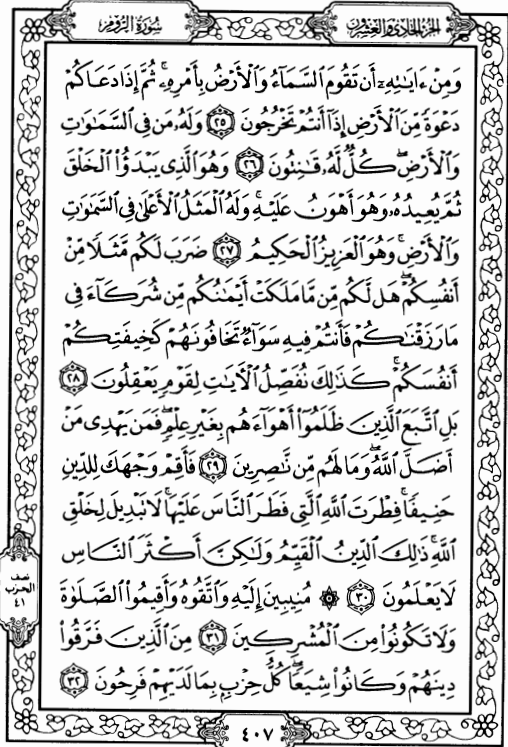 الجزء الحادي والعشرون
سورة الروم
وَمِنْ ءَايَـٰتِهِۦٓ أَن تَقُومَ ٱلسَّمَآءُ وَٱلْأَرْضُ بِأَمْرِهِۦۚ ثُمَّ إِذَا دَعَاكُمْ
دَعْوَةً مِّنَ ٱلْأَرْضِ إِذَآ أَنتُمْ تَخْرُجُونَ ٢٥ وَلَهُۥ مَن فِى ٱلسَّمَـٰوَٰتِ
وَٱلْأَرْضِۖ كُلٌّ لَّهُۥ قَـٰنِتُونَ ٢٦ وَهُوَ ٱلَّذِى يَبْدَؤُا۟ ٱلْخَلْقَ
ثُمَّ يُعِيدُهُۥ وَهُوَ أَهْوَنُ عَلَيْهِۚ وَلَهُ ٱلْمَثَلُ ٱلْأَعْلَىٰ فِى ٱلسَّمَـٰوَٰتِ
وَٱلْأَرْضِۚ وَهُوَ ٱلْعَزِيزُ ٱلْحَكِيمُ ٢٧ ضَرَبَ لَكُم مَّثَلًا مِّنْ
أَنفُسِكُمْۖ هَل لَّكُم مِّن مَّا مَلَكَتْ أَيْمَـٰنُكُم مِّن شُرَكَآءَ فِى
مَا رَزَقْنَـٰكُمْ فَأَنتُمْ فِيهِ سَوَآءٌ تَخَافُونَهُمْ كَخِيفَتِكُمْ
أَنفُسَكُمْۚ كَذَٰلِكَ نُفَصِّلُ ٱلْـَٔايَـٰتِ لِقَوْمٍ يَعْقِلُونَ ٢٨
بَلِ ٱتَّبَعَ ٱلَّذِينَ ظَلَمُوٓا۟ أَهْوَآءَهُم بِغَيْرِ عِلْمٍۖ فَمَن يَهْدِى مَنْ
أَضَلَّ ٱللَّهُۖ وَمَا لَهُم مِّن نَّـٰصِرِينَ ٢٩ فَأَقِمْ وَجْهَكَ لِلدِّينِ
حَنِيفًاۚ فِطْرَتَ ٱللَّهِ ٱلَّتِى فَطَرَ ٱلنَّاسَ عَلَيْهَاۚ لَا تَبْدِيلَ لِخَلْقِ
ٱللَّهِۚ ذَٰلِكَ ٱلدِّينُ ٱلْقَيِّمُ وَلَـٰكِنَّ أَكْثَرَ ٱلنَّاسِ
لَا يَعْلَمُونَ ٣٠ ۞ مُنِيبِينَ إِلَيْهِ وَٱتَّقُوهُ وَأَقِيمُوا۟ ٱلصَّلَوٰةَ
وَلَا تَكُونُوا۟ مِنَ ٱلْمُشْرِكِينَ ٣١ مِنَ ٱلَّذِينَ فَرَّقُوا۟
دِينَهُمْ وَكَانُوا۟ شِيَعًاۖ كُلُّ حِزْبٍۭ بِمَا لَدَيْهِمْ فَرِحُونَ ٣٢
نصف
الحزب
٤١
٤٠٧